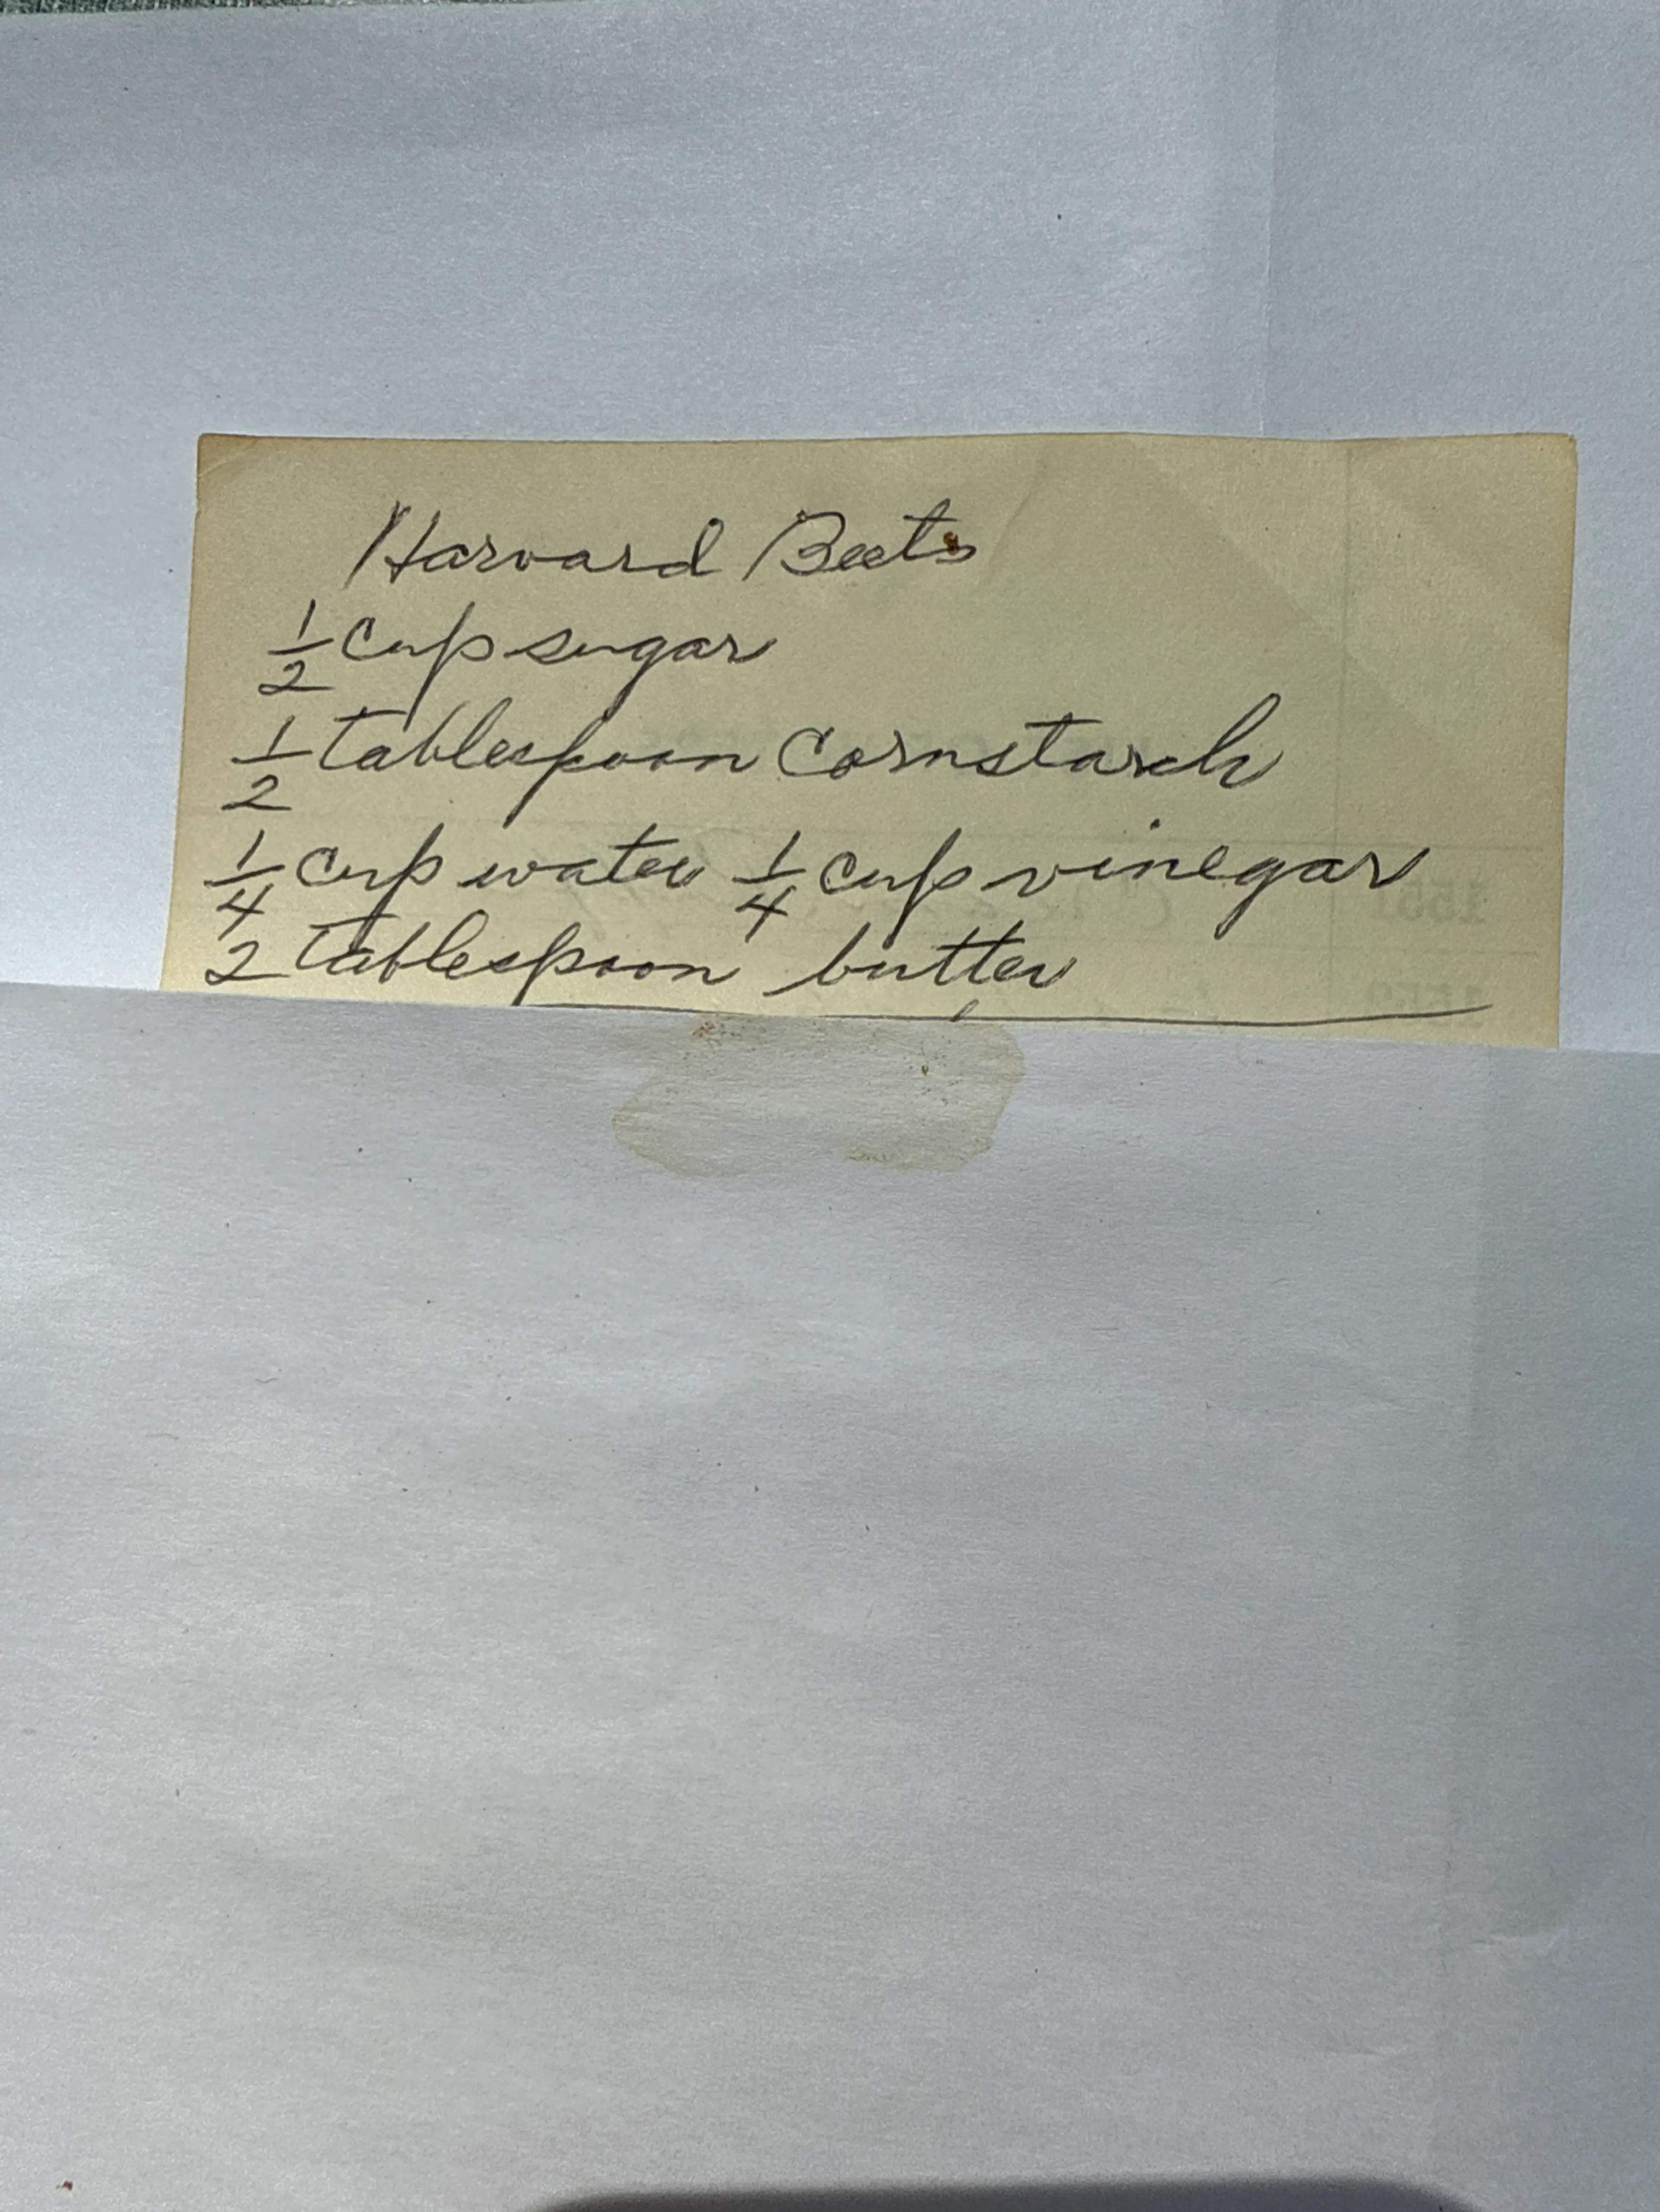 Harvard Beets
1/2 cup sugar
1/2 tablespoon Cornstarch
1/4 cup water 1/4 cup vinegar
2 tablespoon butter